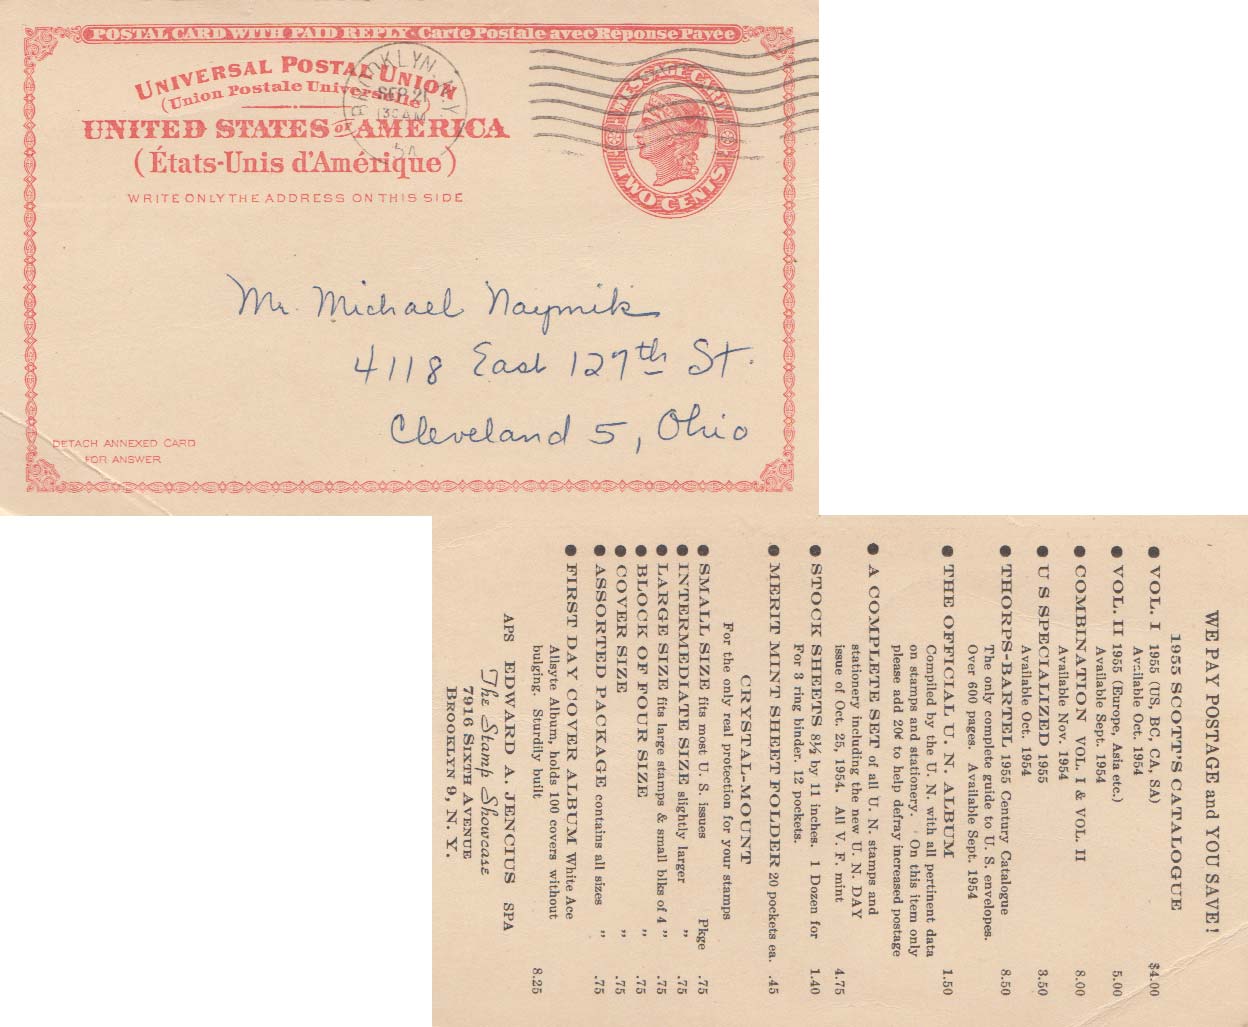 POSTAL CARD WITH PAID REPLY · Carte Postale avec Réponse Payée
UNIVERSAL POSTAL UNION
(Union Postale Universelle)
UNITED STATES OF AMERICA
(États-Unis d'Amérique)
WRITE ONLY THE ADDRESS ON THIS SIDE
BROOKLYN, N.Y.
SEP 21
AM
U.S. POSTAGE
TWO CENTS
Mr. Michael Naymik
4118 East 127th St.
Cleveland 5, Ohio
DETACH ANNEXED CARD
FOR ANSWER
WE PAY POSTAGE and YOU SAVE!
1955 SCOTT'S CATALOGUE
● VOL. I 1955 (US, BC, CA, SA) $4.00
Available Oct. 1954
● VOL. II 1955 (Europe, Asia etc.) 5.00
Available Sept. 1954
● COMBINATION VOL. I & VOL. II 8.00
Available Nov. 1954
● U S SPECIALIZED 1955 3.50
Available Oct. 1954
● THORPS-BARTEL 1955 Century Catalogue 8.50
The only complete guide to U. S. envelopes.
Over 600 pages. Available Sept. 1954
● THE OFFICIAL U. N. ALBUM 1.50
Compiled by the U. N. with all pertinent data
on stamps and stationery. On this item only
please add 20¢ to help defray increased postage
● A COMPLETE SET of all U. N. stamps and
stationery including the new U. N. DAY
issue of Oct. 25, 1954. All V. F. mint 4.75
● STOCK SHEETS 8½ by 11 inches. 1 Dozen for 1.40
For 3 ring binder. 12 pockets.
● MERIT MINT SHEET FOLDER 20 pockets ea. .45
CRYSTAL-MOUNT
For the only real protection for your stamps
● SMALL SIZE fits most U. S. issues Pkge .75
● INTERMEDIATE SIZE slightly larger " .75
● LARGE SIZE fits large stamps & small blks of 4 " .75
● BLOCK OF FOUR SIZE " .75
● COVER SIZE " .75
● ASSORTED PACKAGE contains all sizes " .75
● FIRST DAY COVER ALBUM White Ace
Allsyte Album, holds 100 covers without
bulging. Sturdily built 8.25
APS EDWARD A. JENCIUS SPA
The Stamp Showcase
7916 SIXTH AVENUE
BROOKLYN 9, N. Y.